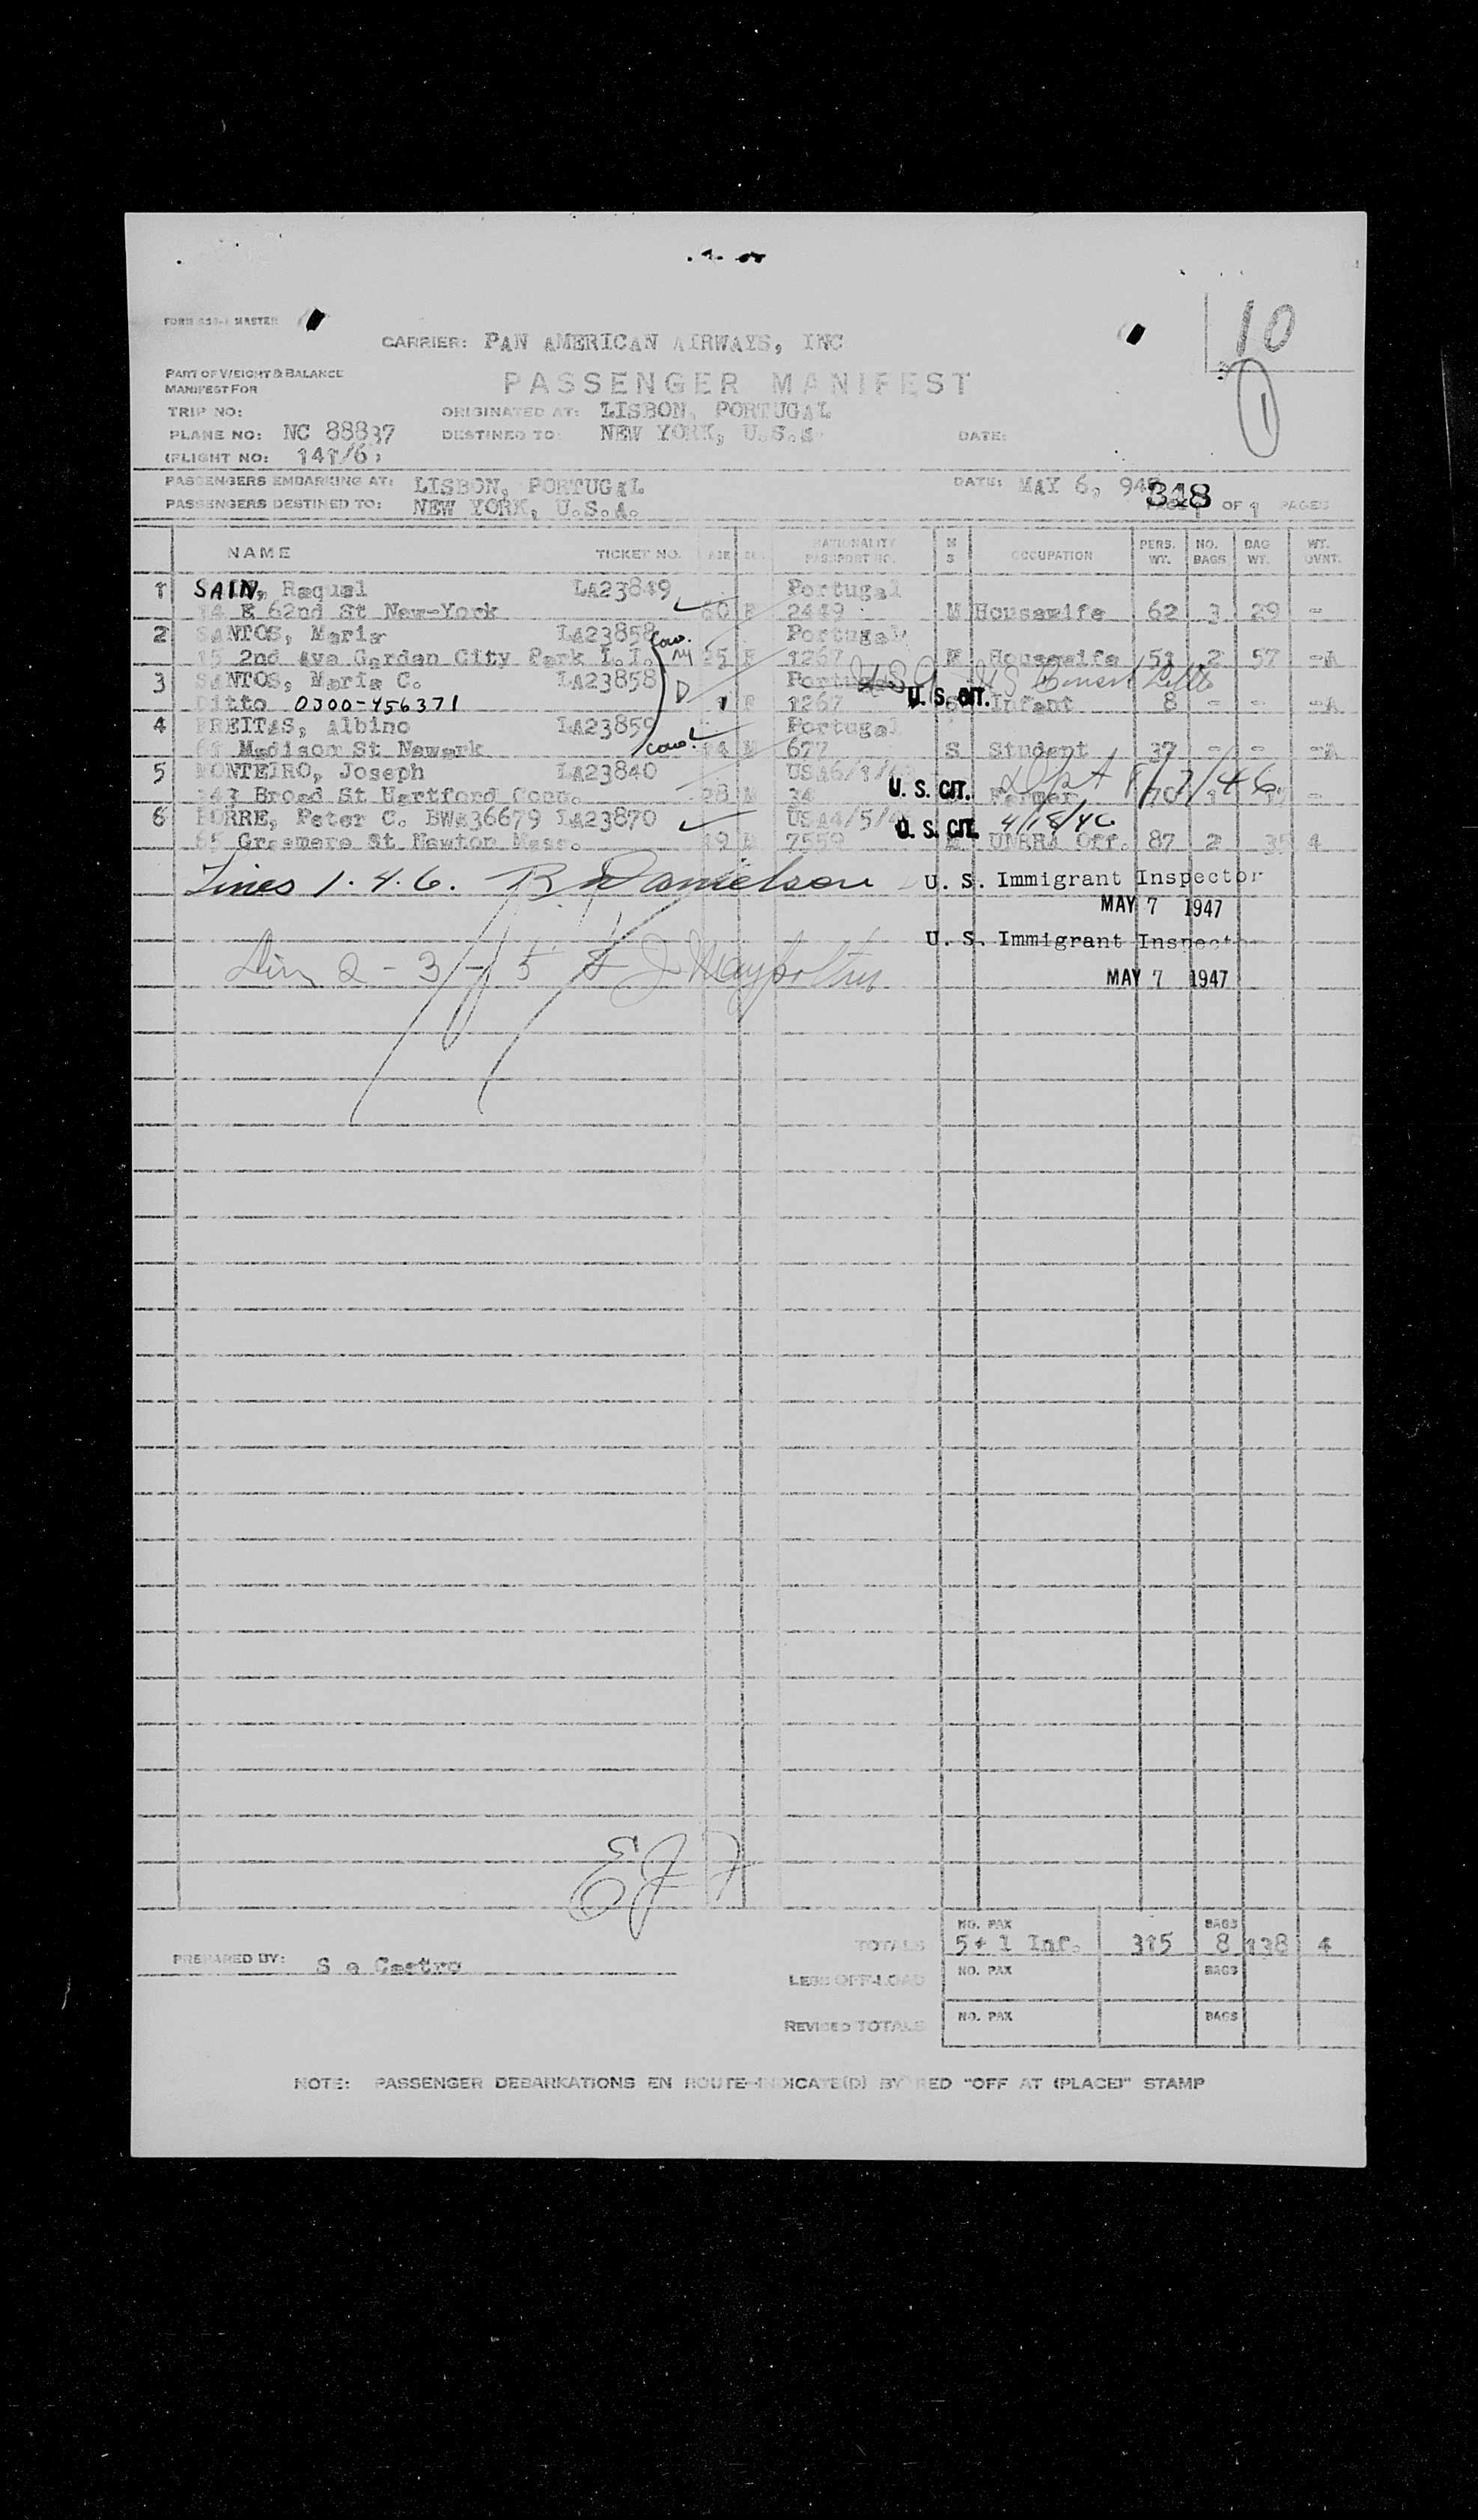 10
FORM MASTER
CARRIER: PAN AMERICAN AIRWAYS, INC
PART OF WEIGHT & BALANCE
MANIFEST FOR
PASSENGER MANIFEST
1
TRIP NO:
ORIGINATED AT: LISBON, PORTUGAL
PLANE NO: NC 88837
DESTINED TO: NEW YORK, U.S.A.
DATE:
(FLIGHT NO: 141/6)
PASSENGERS EMBARKING AT: LISBON, PORTUGAL
DATE: MAY 6, 94
318
OF 1 PAGES
PASSENGERS DESTINED TO: NEW YORK, U.S.A.
NAME TICKET NO. NATIONALITY PASSPORT NO. M S OCCUPATION PERS. WT. NO. BAGS BAG WT. WT. OVNT.
1 SAIN, Raquel LA23849 Portugal
14 E 62nd St New-York F 2449 M Housewife 62 3 29 -
2 SANTOS, Maria LA23858 Portugal
15 2nd Ave Garden City Park L.I. 25 F 1267 M Housewife 51 2 57 -A
3 SANTOS, Maria C. LA23858 D
Ditto 0300-456371 1 F 1267 U. S. CIT. S Infant 8 - - -A
4 FREITAS, Albino LA23859 Portugal
Madison St Newark 14 M 677 S Student 37 - - -A
5 MONTEIRO, Joseph LA23840
343 Broad St Hartford Conn. 28 M 34 U. S. CIT. Farmer 70 -
6 Peter C. BW236679 LA23870 USA4/5/
Newton Mass. 7559 U. S. CIT. 4/18/46 UNRRA Off. 87 2 35 4
Lines 1. 4. 6. R Danielson U. S. Immigrant Inspector
MAY 7 1947
U. S. Immigrant Inspector
2 - 3 - 5
MAY 7 1947
EJF
NO. PAX BAGS
TOTALS 5+ 1 Inf. 315 8 138 4
PREPARED BY: S a Castro
LESS OFF-LOAD NO. PAX BAGS
REVISED TOTALS NO. PAX BAGS
NOTE: PASSENGER DEBARKATIONS EN ROUTE INDICATE(D) BY RED "OFF AT (PLACE)" STAMP